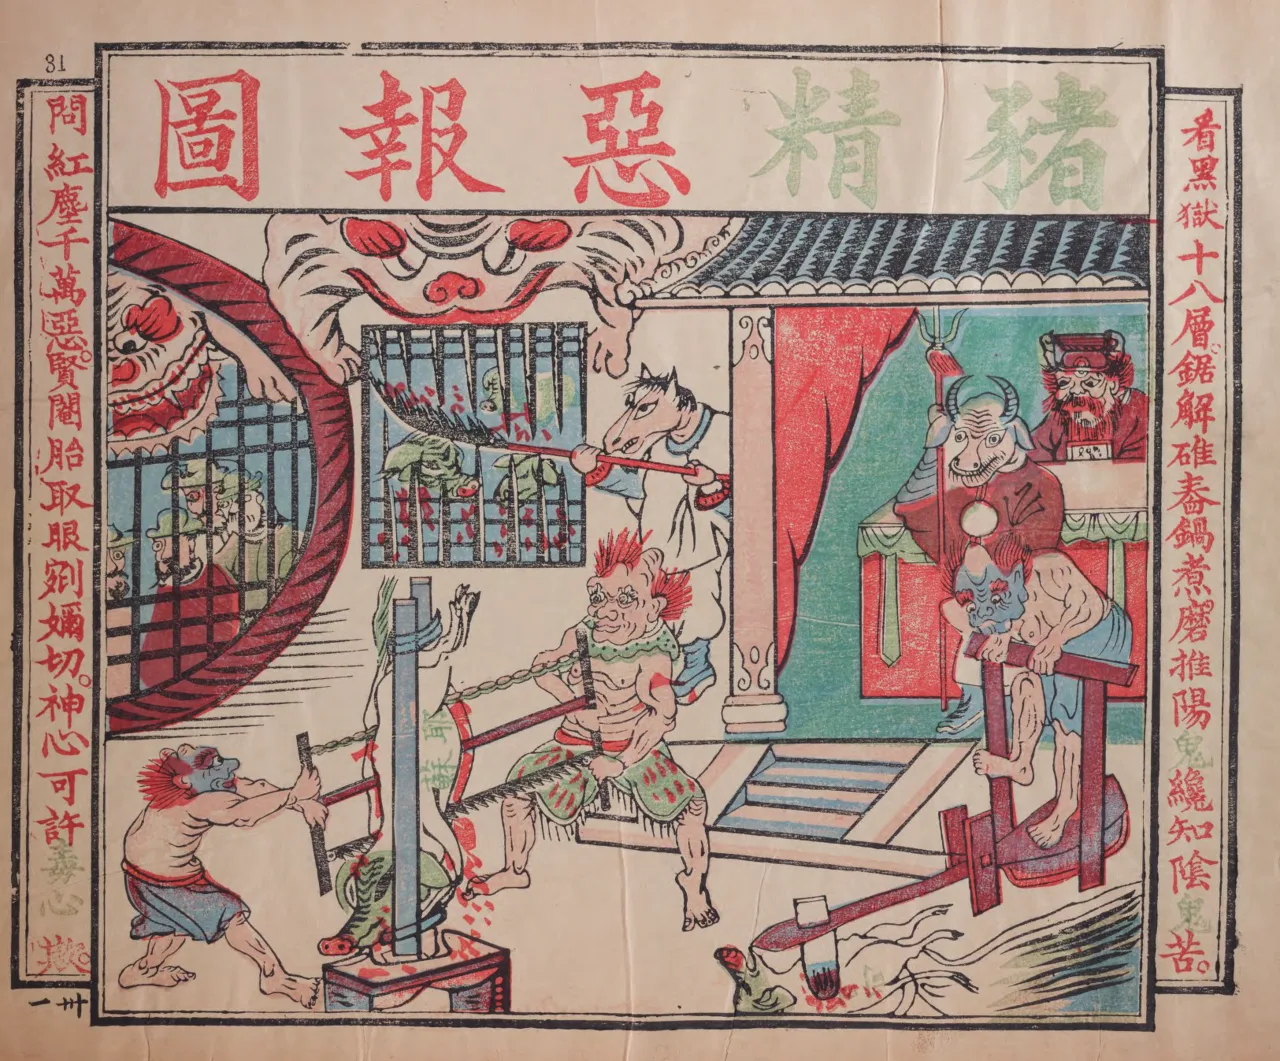 31
豬精惡報圖
看黑獄十八層。鋸解碓舂鍋煮磨推陽鬼纔知陰鬼苦。
問紅塵千萬惡。賢閹胎取眼剜嬭切。神心可許毒心欺。
耶穌
卅一